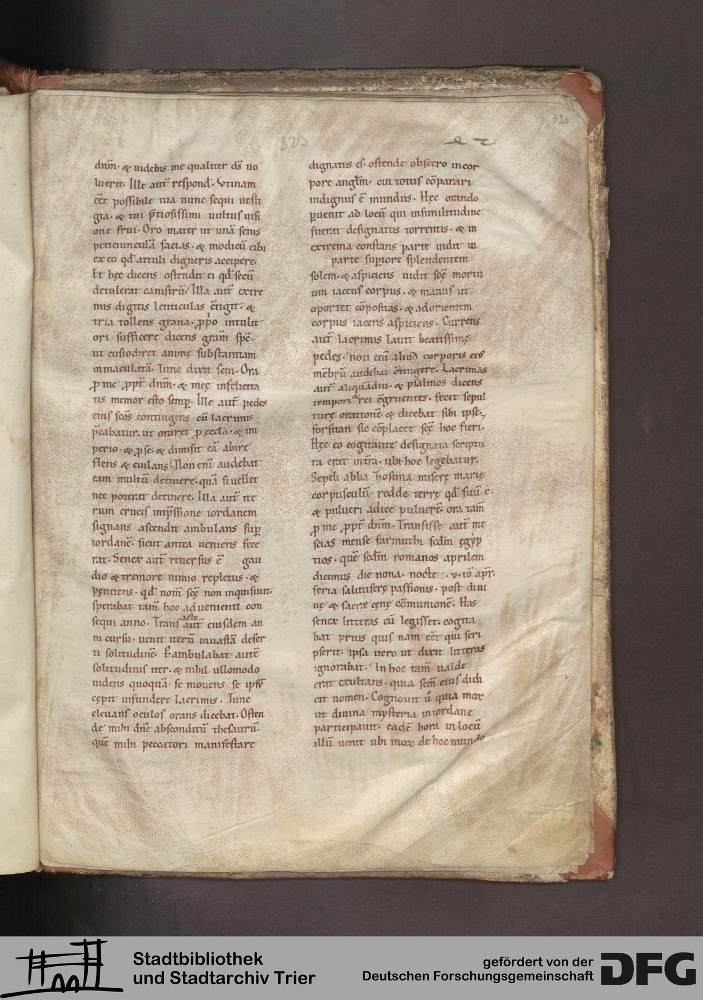 325
325
dnm̄· & uidebis me qualiter ds̄ uo
luerit. Ille aut̄ respond̄· Vtinam
eēt possibile tua nunc sequi uesti
gia· & tui p̄tiosissimi uultus uisi
one frui. Oro mater ut unā senis
peticiunculā facias· & modicū cibi
ex eo qd̄ attuli digneris accipere·
Et hęc dicens ostendit ei qd̄ secū
detulerat canistrū. Illa aut̄ extre
mis digitis lenticulas c̄tigit· &
tria tollens grana· intulit
ori sufficere dicens gram̄ sp̄c·
ut custodiret animę substantiam
inmaculatā. Tunc dixit seni· Ora
p̱ me p̱pt̄ dnm̄· & meę infelicita
tis memor esto semp̱. Ille aut̄ pedes
eius scōs contingens cū lacrimis
p̄cabatur· ut oraret p̱ eccła· & im
perio· & p̱ se· & dimisit eā abire
flens & eiulans. Non enī audebat
eam multū detinere· quā si uellet
nec poterat detinere. Illa aut̄ ite
rum crucis imp̄ssione iordanem
signans ascendit ambulans sup̱
iordanē· sicut antea ueniens fece
rat· Senex aut̄ reuersus ē gau
dio & tremore nimio repletus· &
pęnitens· qd̄ nom̄ scę̄ non inquisiuit·
sperabat tam̄ hoc aduenienti con
sequi anno. Transacto aut̄ eiusdem an
ni cursu· uenit iterū inuastā deser
ti solitudinē· & ambulabat autē
solitudinis iter· & nihil ullomodo
uidens quoquā se mouens se ipsū
cępit infundere lacrimis. Tunc
eleuans oculos orans dicebat· Osten
de mihi dnē absconditū thesaurū·
quē mihi peccatori manifestare
dignatus es· ostende obsecro incor
pore anglm̄· cui totus cōparari
indignus ē mundus. Hęc orando
p̱uenit ad locū qui insimilitudinē
fuerat designatus torrentis· & in
extrema constans parte uidit in
parte supiore splendentem
solem· & aspiciens uidit scę̄ mortu
um iacens corpus· & manus ut
oportet cōpositas· & adorientem
corpus iacens aspiciens. Currens
aut̄ lacrimis lauit beatissimę
pedes· non enī aliud corporis eius
mēbrū audebat c̄tingere. Lacrimas
aut̄ aliquādiu· & psalmos dicens
tempori & rei c̄gruentes· fecit sepul
turę orationē· & dicebat sibi ipse·
forsitan sic cōplacet scę̄ hoc fieri·
Hęc eo cogitante designata scriptu
ra erat intrā· ubi hoc legebatur.
Sepeli abba zosima miserę marię
corpusculū· redde terrę qd̄ suū ē·
& pulueri adice puluerē· ora tam̄
p̱ me p̱pt̄ dnm̄· Transisse aut̄ me
scias mense farmuthi scdm̄ egyp
tios· quę scdm̄ romanos aprilem
dicimus die nona· nocte ·v· id apr̄·
feria salutiferę passionis· post diui
nę & sacrę cęnę cōmunionē. Has
senex litteras cū legisset· cogita
bat prius quis nam eēt qui scri
pserit· ipsa uero ut dixit litteras
ignorabat. In hoc tam̄ ualde
erat exultans· quia scm̄ eius didi
cit nomen. Cognouit ū quia mox
ut diuina mysteria iniordane
participauit· eadē hora inlocū
illū uenit ubi mox de hoc mundo
Stadtbibliothek
und Stadtarchiv Trier
gefördert von der
Deutschen Forschungsgemeinschaft
DFG